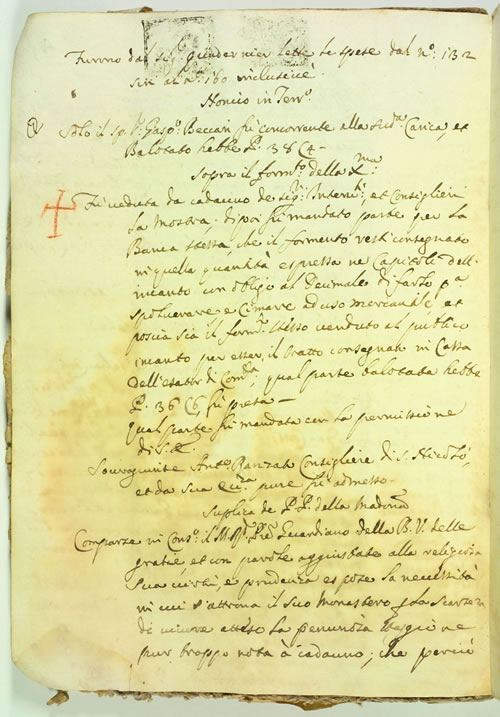 Furono dal sig.r quindernier lette le spese dal n.o: 132
sin al n.o: 160 inclusive.
Noncio in Ter.o:
Solo il sp. s.r Gasp.o: Beccari fù concorrente alla sud.ta Carica, et
Balotato hebbe P. 38 C 4 -
Sopra il form.to: della X.ma
Fù veduta da cadauno de sig.ri Interv.ti, et Consiglieri
la mostra; dipoi fù mandato parte per la
Banca stessa, che il formento resti consegnato
in quella quantità espressa ne Capitoli dell'
incanto con obligo al Decimale di farlo p.a
spoluerare e Cimare ad uso mercantile, et
poscia sia il form.to stesso venduto al publico
incanto per esser, il tratto consegnato in Cassa
dell'esattor di Com.tà, qual parte balotata hebbe
P. 36 C 6, fù presa -
Qual parte fù mandata con la permissione
di S. E.
Souragiunse Ant.o Banzato Consigliere di S. Nicolò,
et da Sua Ecc.za pure fù admesso.
Suplica de P.P. della Madona
Comparso in Cons.o: il M. R. P.re Guardiano della B. V. delle
gratie, et con parole aggiustate alla religiosa
sua virtù, e prudenza espose la necessità
in cui s'attrova il suo Monastero p. la scarsezza
di vivere atteso la penuriosa stagione
pur troppo nota à cadauno; che perciò